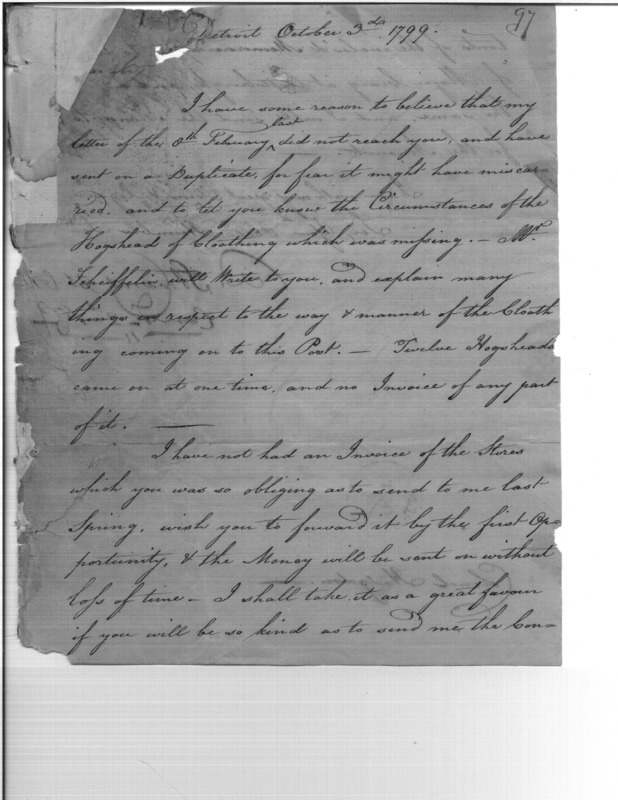 97
Detroit October 3d. 1799.
I have some reason to believe that my
last
letter of the 8th Febuary did not reach you, and have
sent on a Duplicate, for fear it might have miscar=
ried. and to let you know the Circumstances of the
Hogshead of Cloathing which was missing. — Mr.
Schieffelin will Write to you, and explain many
things in respect to the way & manner of the Cloath
ing coming on to this Post. — Twelve Hogsheads
came on at one time, and no Invoice of any part
of it. —
I have not had an Invoice of the Stores
which you was so obliging as to send to me last
Spring, wish you to forward it by the first Op=
portunity, & the Money will be sent on without
loss of time — I shall take it as a great favour
if you will be so kind as to send me the Con=